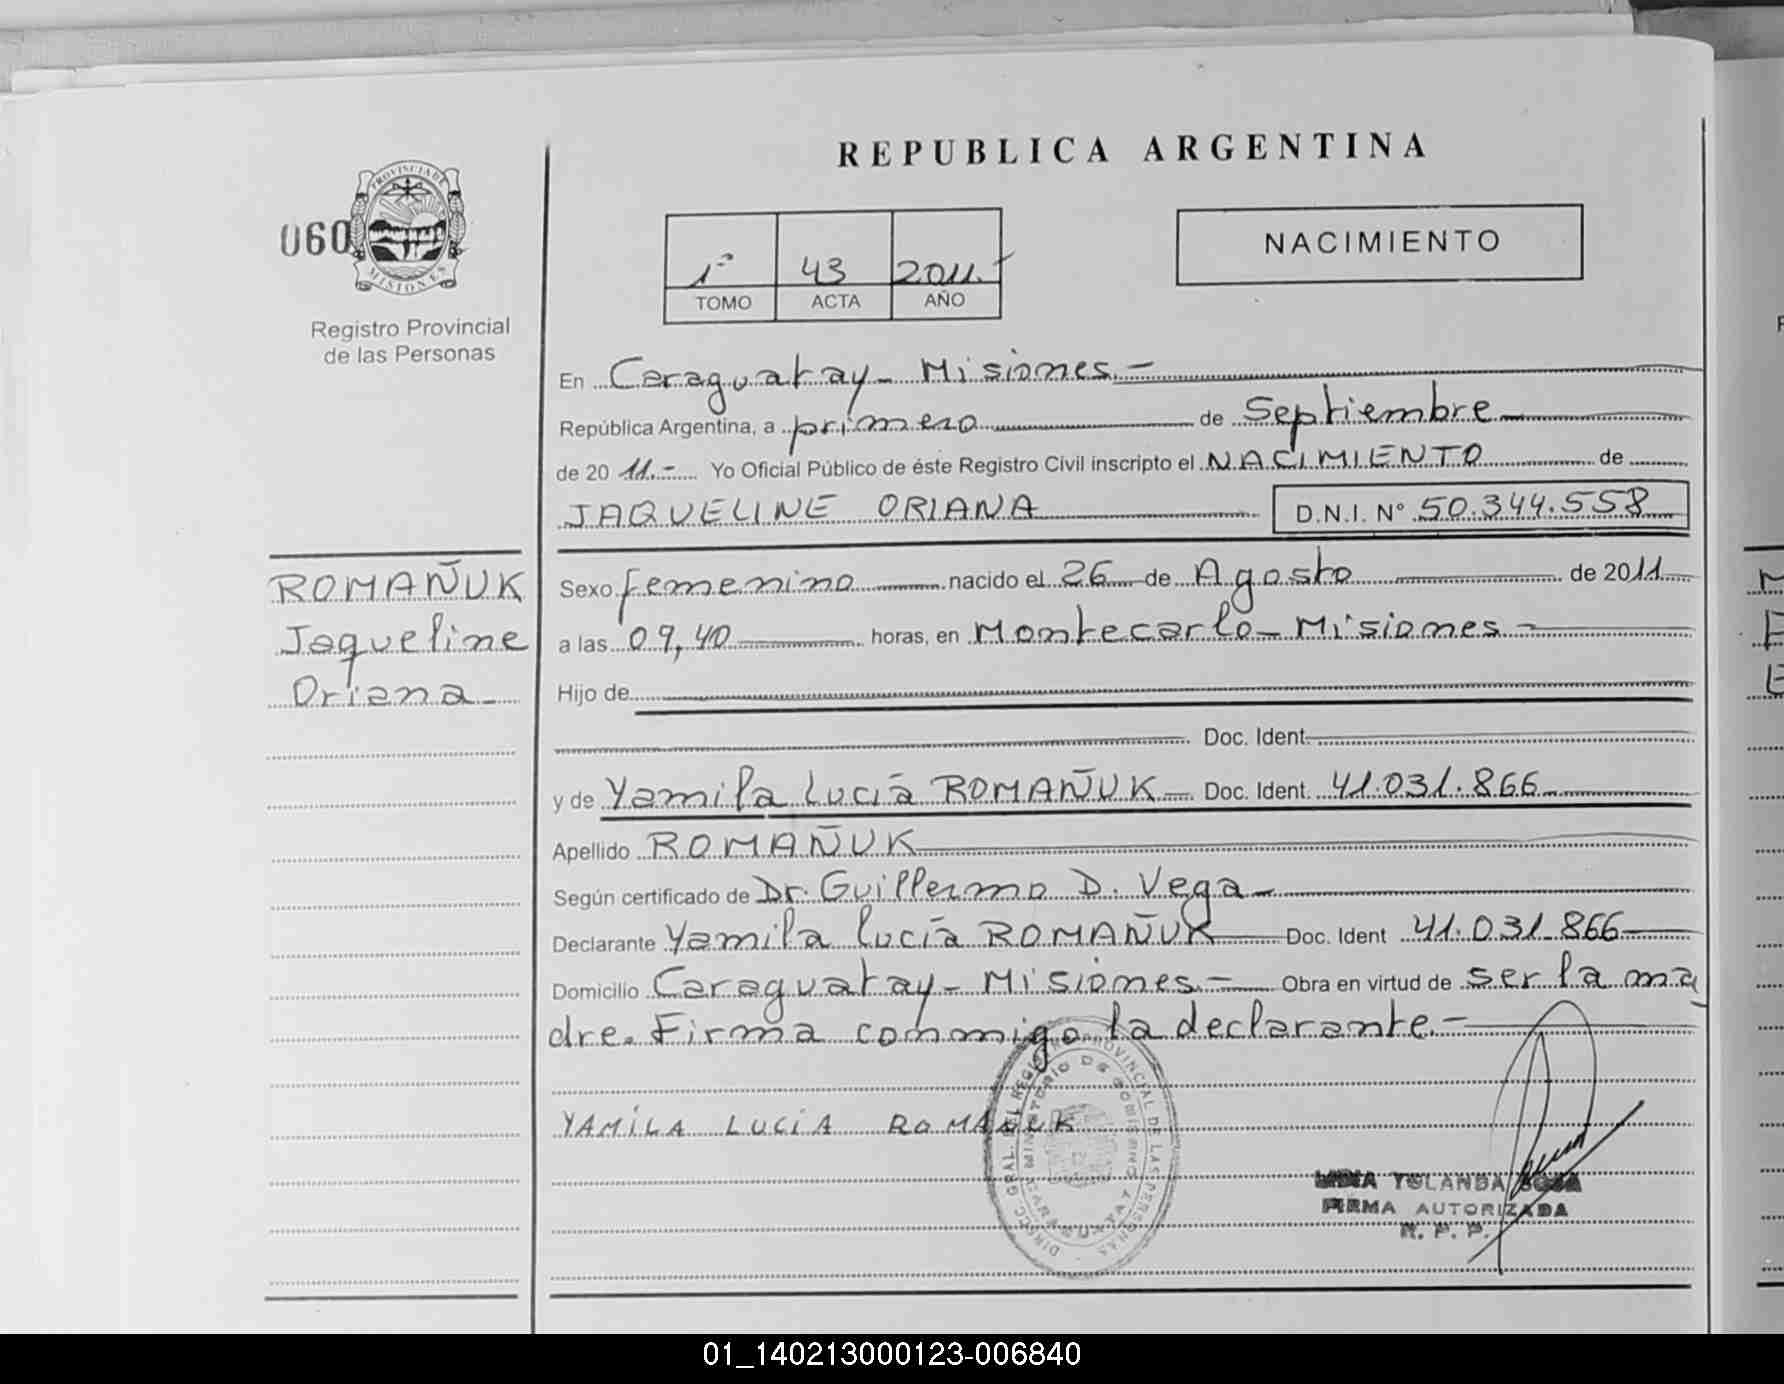 REPUBLICA ARGENTINA
060
PROVINCIA DE
MISIONES
Registro Provincial
de las Personas
1º 43 2011.
TOMO ACTA AÑO
NACIMIENTO
En Caraguatay - Misiones.-
República Argentina, a primero de Septiembre
de 2011.- Yo Oficial Público de éste Registro Civil inscripto el NACIMIENTO de
JAQUELINE ORIANA D.N.I. Nº 50.344.558
ROMAÑUK
Jaqueline
Oriana -
Sexo femenino nacido el 26 de Agosto de 2011
a las 09,40 horas, en Montecarlo - Misiones -
Hijo de
Doc. Ident.
y de Yamila Lucía ROMAÑUK - Doc. Ident. 41.031.866
Apellido ROMAÑUK
Según certificado de Dr. Guillermo D. Vega -
Declarante Yamila Lucía ROMAÑUK Doc. Ident 41.031.866
Domicilio Caraguatay - Misiones.- Obra en virtud de ser la ma
dre. Firma conmigo la declarante.-
YAMILA LUCÍA ROMAÑUK
DIRECC. GRAL. DEL REGISTRO PROVINCIAL DE LAS PERSONAS
MINISTERIO DE GOBIERNO
CARAGUATAY
LIDIA YOLANDA SOSA
FIRMA AUTORIZADA
R. P. P.
01_140213000123-006840